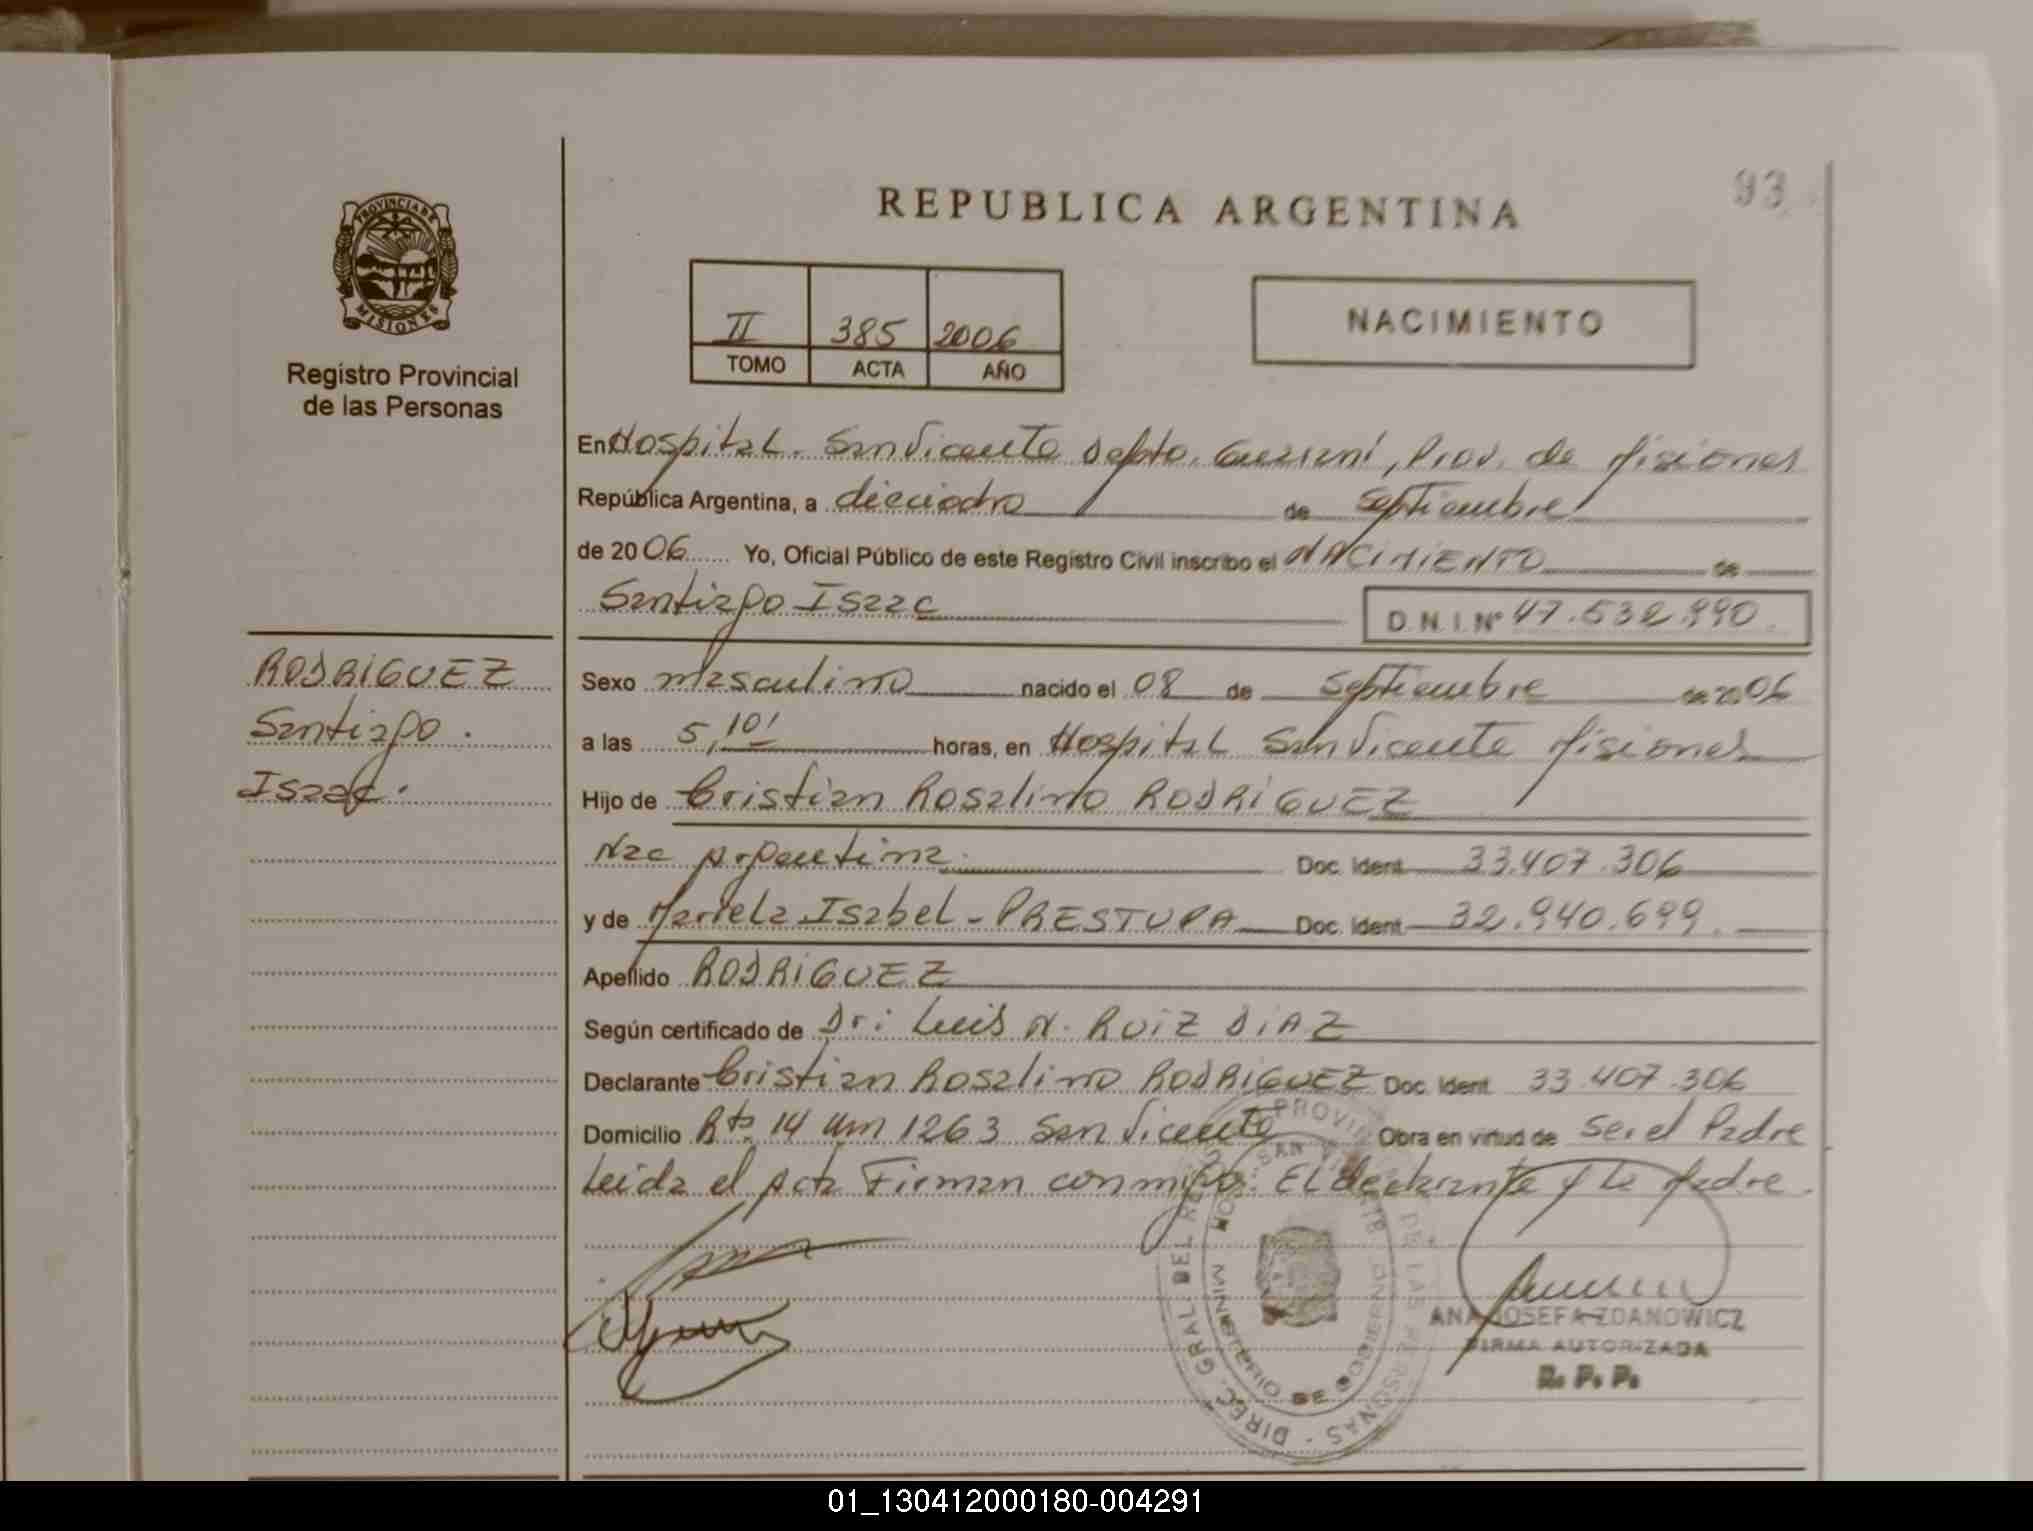 93
REPUBLICA ARGENTINA
PROVINCIA DE
MISIONES
Registro Provincial
de las Personas
II 385 2006
TOMO ACTA AÑO
NACIMIENTO
En Hospital. San Vicente Depto. Guaraní, Prov. de Misiones
República Argentina, a dieciocho de Septiembre
de 2006 Yo, Oficial Público de este Registro Civil inscribo el NACIMIENTO de
Santiago Isaac
D.N.I. Nº 47.532.990.
RODRIGUEZ
Santiago.
Isaac.
Sexo Masculino nacido el 08 de Septiembre de 2006
a las 5,10' horas, en Hospital San Vicente Misiones
Hijo de Cristian Rosalino RODRIGUEZ
Nac Argentina. Doc. Ident. 33.407.306
y de Mariela Isabel - PRESTUPA Doc. Ident. 32.940.699.
Apellido RODRIGUEZ
Según certificado de Dr: Luis N. RUIZ DIAZ
Declarante Cristian Rosalino RODRIGUEZ Doc. Ident. 33.407.306
Domicilio Rta. 14 Km 1263 San Vicente Obra en virtud de Ser el Padre
Leida el Acta Firman conmigo: El declarante y la Madre.
DIREC. GRAL. DEL PROVINCIAL DE LAS PERSONAS
MINISTERIO DE GOBIERNO
ANA JOSEFA ZDANOWICZ
FIRMA AUTORIZADA
R. P. P.
01_130412000180-004291